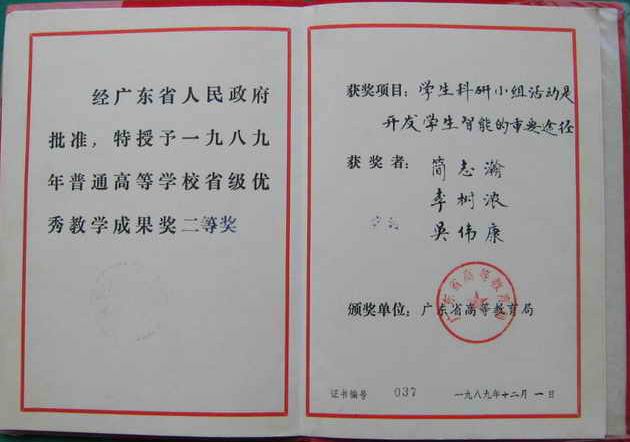 经广东省人民政府
批准，特授予一九八九
年普通高等学校省级优
秀教学成果奖二等奖
获奖项目：学生科研小组活动是
开发学生智能的重要途径
获奖者：简志瀚
李树浓
吴伟康
广东省高等教育局
颁奖单位：广东省高等教育局
证书编号 037 一九八九年十二月一日